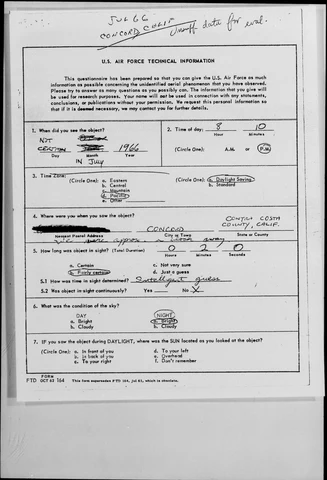 JUL 66
CONCORD CALIF
Insuff data for eval.
U.S. AIR FORCE TECHNICAL INFORMATION
This questionnaire has been prepared so that you can give the U.S. Air Force as much
information as possible concerning the unidentified aerial phenomenon that you have observed.
Please try to answer as many questions as you possibly can. The information that you give will
be used for research purposes. Your name will not be used in connection with any statements,
conclusions, or publications without your permission. We request this personal information so
that if it is deemed necessary, we may contact you for further details.
1. When did you see the object?
NOT CERTAIN 1966
Day Month Year
IN July
2. Time of day: 8 10
Hour Minutes
(Circle One): A.M. or P.M.
3. Time Zone:
(Circle One): a. Eastern
b. Central
c. Mountain
d. Pacific
e. Other
(Circle One): a. Daylight Saving
b. Standard
4. Where were you when you saw the object?
CONCORD CONTRA COSTA COUNTY, CALIF.
Nearest Postal Address City or Town State or County
We were approx. a block away
5. How long was object in sight? (Total Duration) 0 2 0
Hours Minutes Seconds
a. Certain c. Not very sure
b. Fairly certain d. Just a guess
5.1 How was time in sight determined? Intelligent guess
5.2 Was object in sight continuously? Yes No X
6. What was the condition of the sky?
DAY NIGHT
a. Bright a. Bright
b. Cloudy b. Cloudy
7. IF you saw the object during DAYLIGHT, where was the SUN located as you looked at the object?
(Circle One): a. In front of you d. To your left
b. In back of you e. Overhead
c. To your right f. Don't remember
FORM
FTD OCT 62 164 This form supersedes FTD 164, Jul 61, which is obsolete.